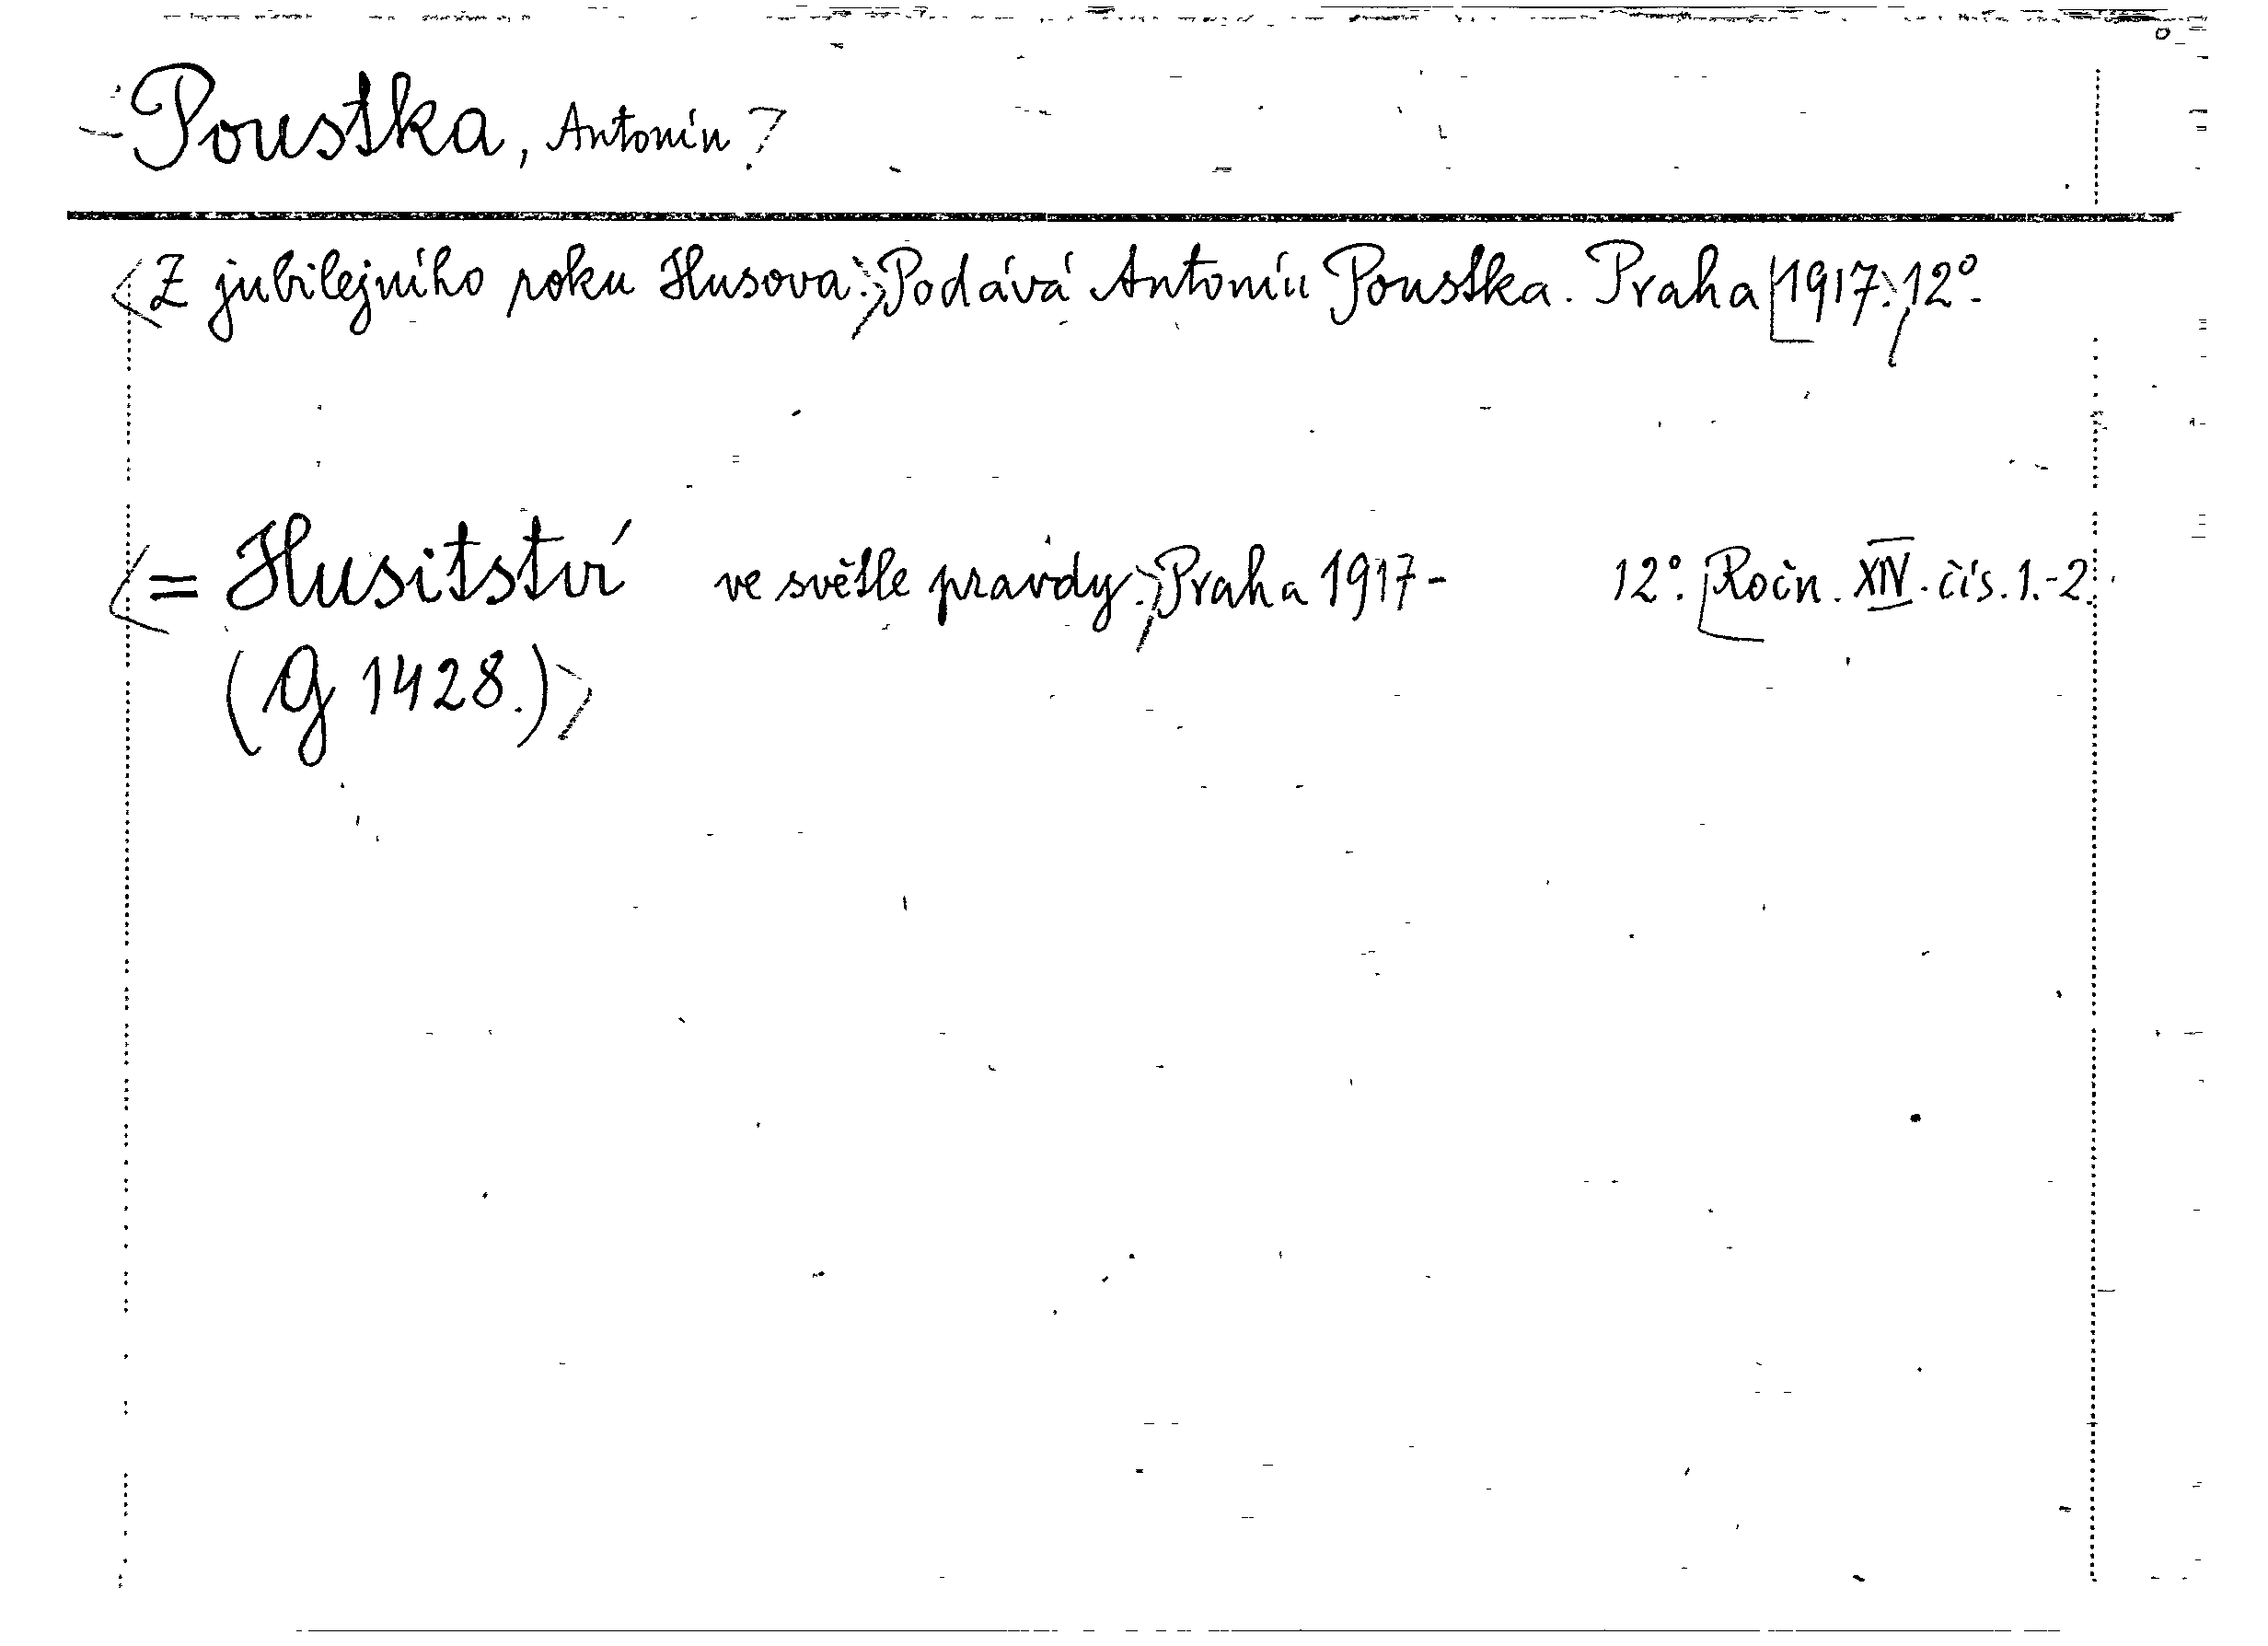 Poustka, Antonín?
<Z jubilejního roku Husova.> Podává Antonín Poustka. Praha [1917.] 12°.
<= Husitství ve světle pravdy.> Praha 1917- 12°. [Ročn. XIV. čís. 1.-2.
(G 1428.)>